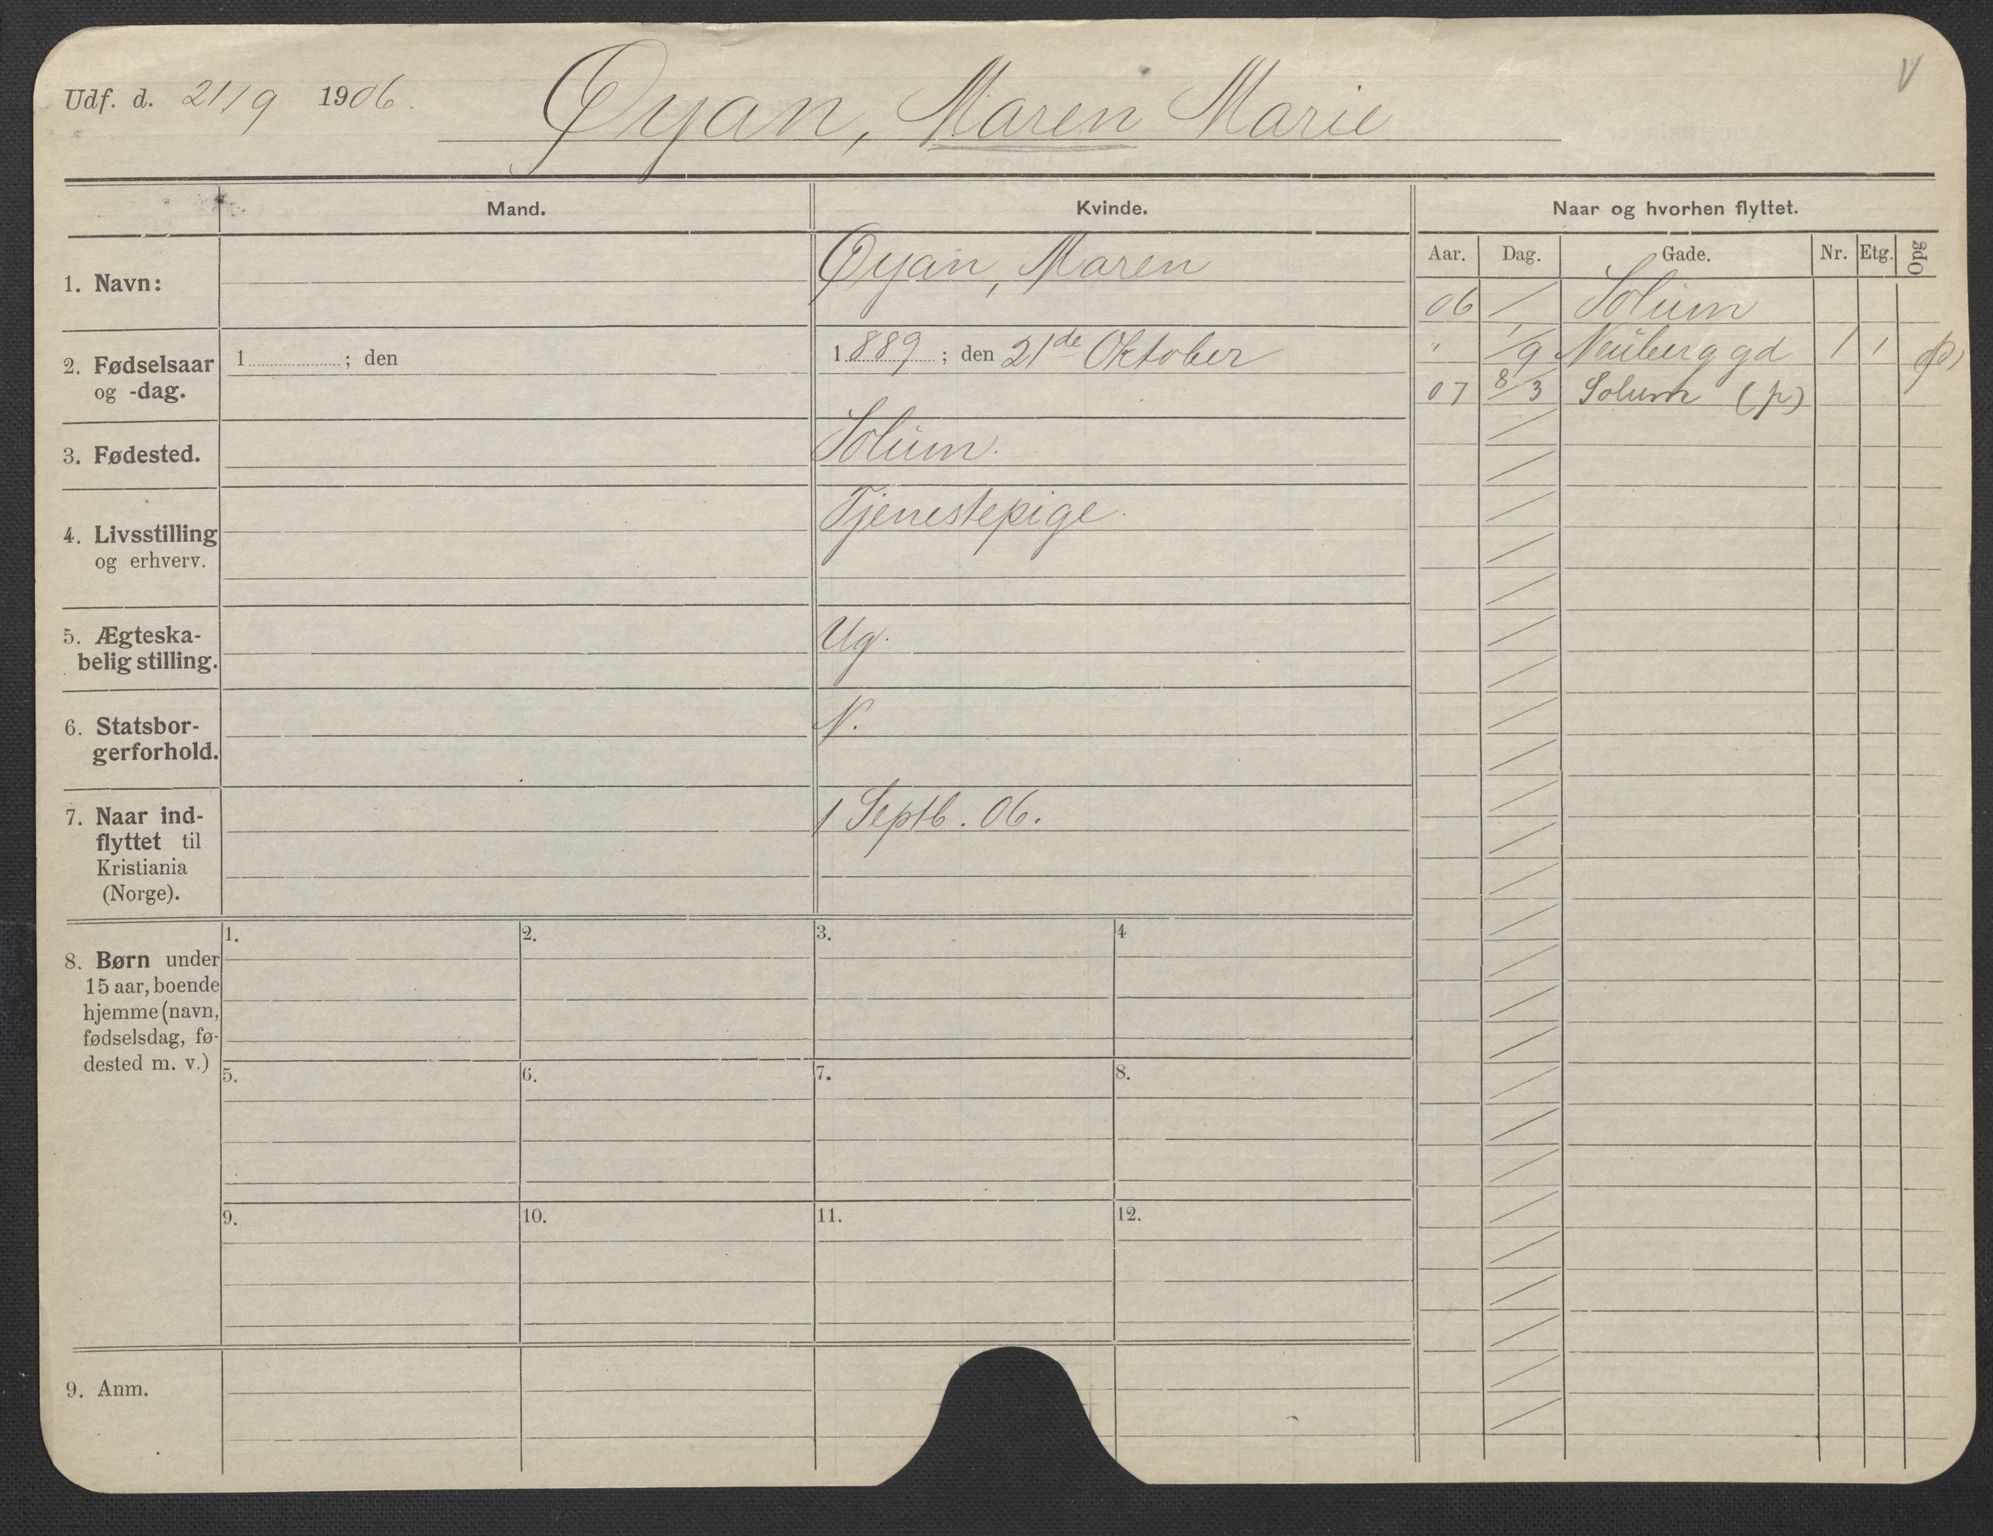 Udf. d. 21/9 1906.
Øyan, Maren Marie
V
Mand.
Kvinde.
Naar og hvorhen flyttet.
Aar. Dag. Gade. Nr. Etg. Opg
1. Navn:
Øyan, Maren
06 / Solum
" 1/9 Neuberggd 1 1 (p)
07 8/3 Solum (p)
2. Fødselsaar
og -dag.
1 ; den
1889 ; den 21de Oktober
3. Fødested.
Solum.
4. Livsstilling
og erhverv.
Tjenestepige.
5. Ægteska-
belig stilling.
Ug.
6. Statsbor-
gerforhold.
N.
7. Naar ind-
flyttet til
Kristiania
(Norge).
1 Septb. 06.
8. Børn under
15 aar, boende
hjemme (navn,
fødselsdag, fø-
dested m. v.)
1. 2. 3. 4
5. 6. 7. 8.
9. 10. 11. 12.
9. Anm.